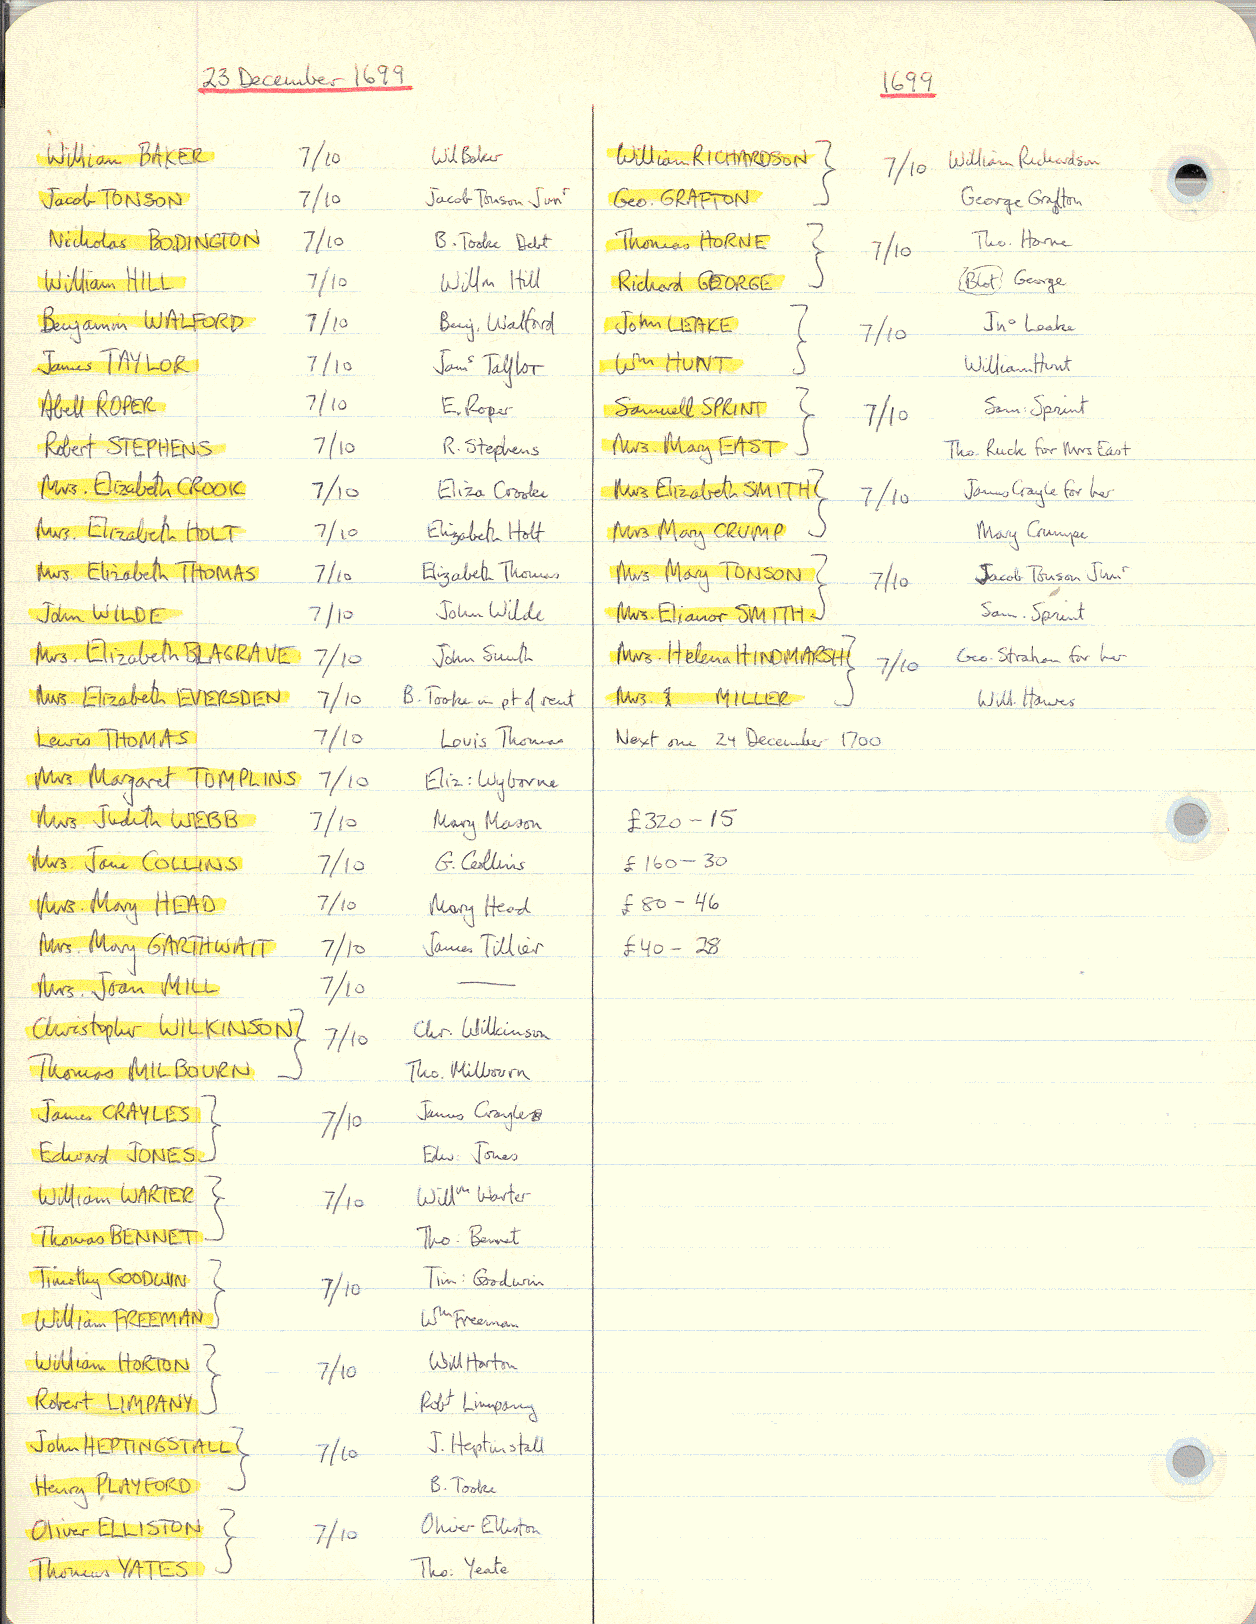 23 December 1699
William BAKER 7/10 Wil Baker
Jacob TONSON 7/10 Jacob Tonson Junr
Nicholas BODINGTON 7/10 B. Tooke Debt
William HILL 7/10 Willm Hill
Benjamin WALFORD 7/10 Benj. Walford
James TAYLOR 7/10 Jams Taylor
Abell ROPER 7/10 E. Roper
Robert STEPHENS 7/10 R. Stephens
Mrs. Elizabeth CROOK 7/10 Eliza Crooke
Mrs. Elizabeth HOLT 7/10 Elizabeth Holt
Mrs. Elizabeth THOMAS 7/10 Elizabeth Thomas
John WILDE 7/10 John Wilde
Mrs. Elizabeth BLAGRAVE 7/10 John Smith
Mrs. Elizabeth EVERSDEN 7/10 B. Tooke in pt of rent
Lewis THOMAS 7/10 Louis Thomas
Mrs Margaret TOMPLINS 7/10 Eliz: Wyborne
Mrs. Judith WEBB 7/10 Mary Mason
Mrs. Jane COLLINS 7/10 G. Collins
Mrs. Mary HEAD 7/10 Mary Head
Mrs. Mary GARTHWAIT 7/10 James Tillier
Mrs. Joan MILL 7/10 —
Christopher WILKINSON } 7/10 Chr. Wilkinson
Thomas MILBOURN Tho. Milbourn
James CRAYLES } 7/10 James Crayle
Edward JONES Edw: Jones
William WARTER } 7/10 Willm Warter
Thomas BENNET Tho: Bennet
Timothy GOODWIN } 7/10 Tim: Goodwin
William FREEMAN Wm Freeman
William HORTON } 7/10 Will Horton
Robert LIMPANY Robt Limpany
John HEPTINGSTALL } 7/10 J. Heptinstall
Henry PLAYFORD B. Tooke
Oliver ELLISTON } 7/10 Oliver Elliston
Thomas YATES Tho: Yeate
1699
William RICHARDSON } 7/10 William Richardson
Geo. GRAFTON George Grafton
Thomas HORNE } 7/10 Tho. Horne
Richard GEORGE (Blot) George
John LEAKE } 7/10 Jno Leake
Wm HUNT William Hunt
Samuell SPRINT } 7/10 Sam: Sprint
Mrs. Mary EAST Tho. Ruck for Mrs East
Mrs Elizabeth SMITH } 7/10 James Crayle for her
Mrs. Mary CRUMP Mary Crumpe
Mrs Mary TONSON } 7/10 Jacob Tonson Junr
Mrs. Elianor SMITH Sam. Sprint
Mrs. Helena HINDMARSH } 7/10 Geo. Strahan for her
Mrs. MILLER Will. Hawes
Next one 24 December 1700
£320 - 15
£160 - 30
£80 - 46
£40 - 28